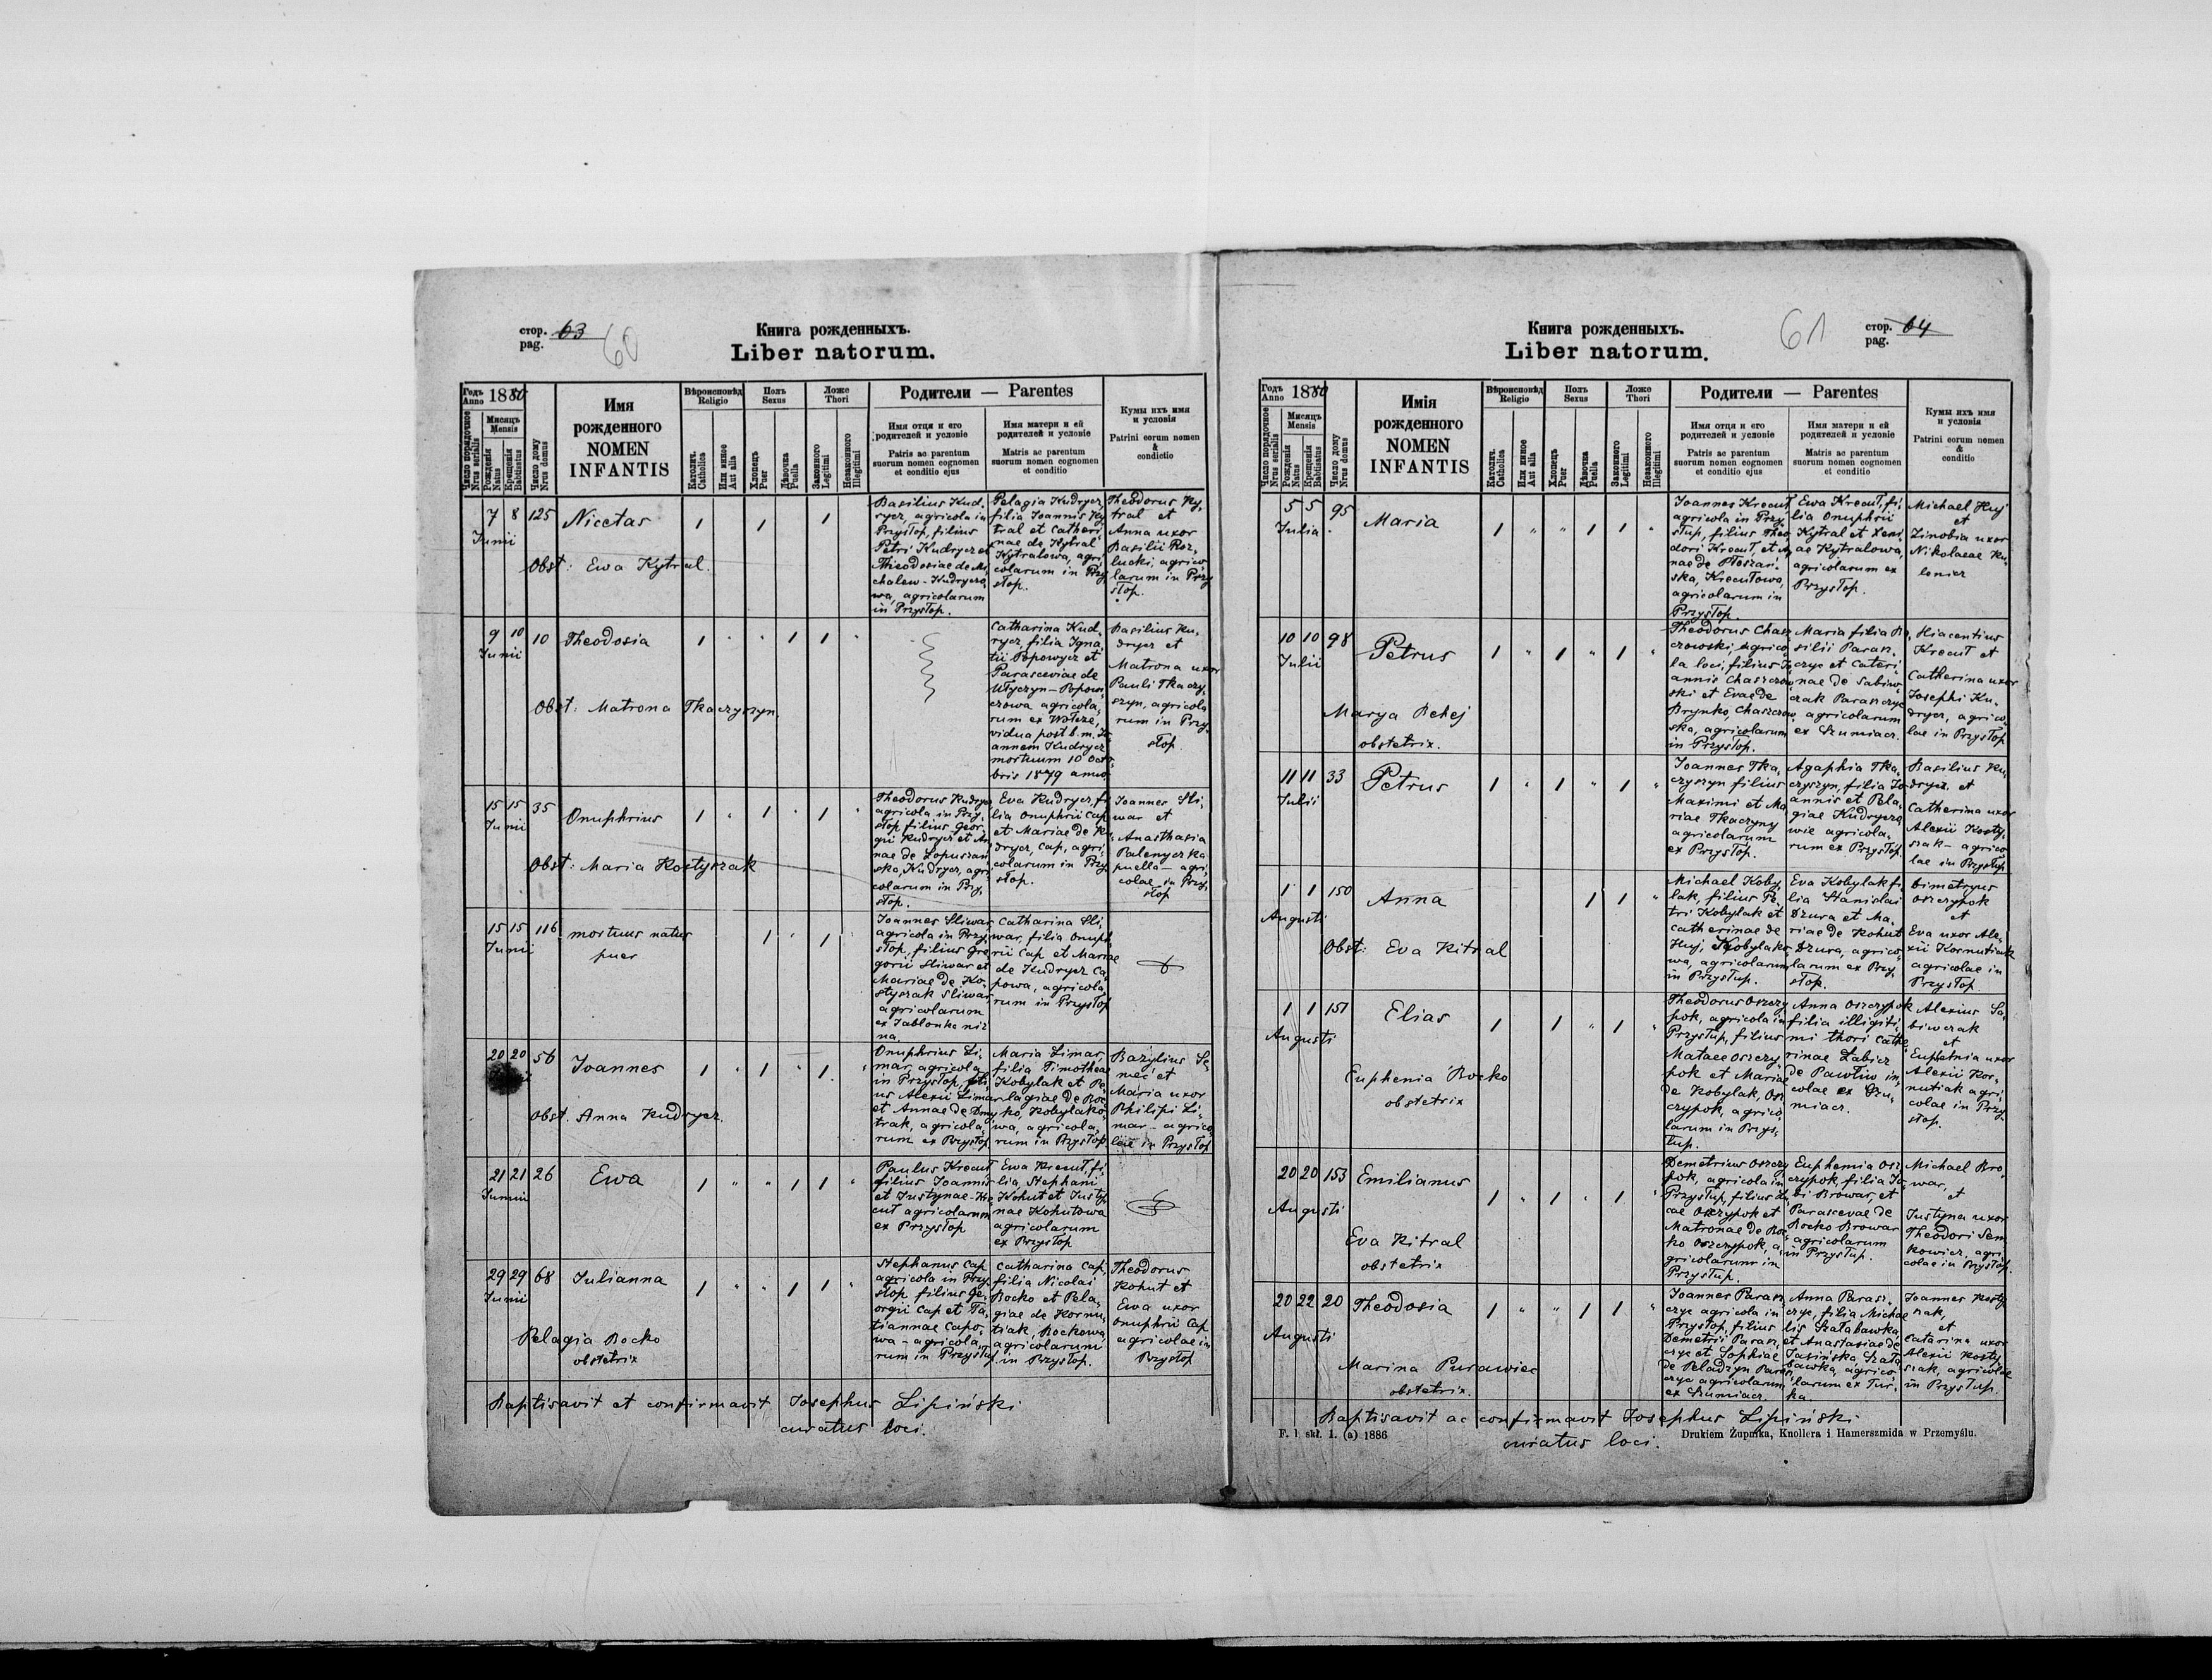 стор. 63
pag.
60
Книга рожденныхъ.
Liber natorum.
Годъ
Anno 1880
Число порядочное
Nrus serialis
Мисяцъ
Mensis
Рожденія
Natus
Крещенія
Babtisatus
Число дому
Nrus domus
Имя
рожденного
NOMEN
INFANTIS
Вѣроисповѣд
Religio
Католич.
Catholica
Или инное
Aut alia
Полъ
Sexus
Хлопецъ
Puer
Дѣвочка
Puella
Ложе
Thori
Законного
Legitimi
Незаконного
Illegitimi
Родители — Parentes
Имя отця и его
родителей и условіе
Patris ac parentum
suorum nomen cognomen
et conditio ejus
Имя матери и ей
родителей и условіе
Matris ac parentum
suorum nomen cognomen
et conditio
Кумы ихъ имя
и условія
Patrini eorum nomen
&
condictio
7 8 125
Junii
Nicetas
1 1 1
Obst: Ewa Kytral.
Basilius Kud,
rycz, agricola in
Przysłop, filius
Petri Kudrycz et
Theodosiae de Mi
chalew - Kudryczo,
wa, agricolarum
in Przysłop.
Pelagia Kudrycz,
filia Joannis Ky
tral et Catheri
nae de Kytral
Kytralowa, agri,
colarum in Przy
słop.
Theodorus Ky,
tral et
Anna uxor
Basilii Roz,
lucki, agrico
larum in Przy
słop.
9 10 10
Junii
Theodosia
1 " " 1 1 "
Obst: Matrona Tkaczyszyn
Catharina Kud,
rycz, filia Igna,
tii Popowycz et
Parasceviae de
Ułyczyn - Popow
czowa agricola,
rum ex Wołcze,
vidua post b. m. Jo
annem Kudrycz
mortuum 10 Octo
bris 1879 anno
Basilius Ku,
drycz et
Matrona uxor
Pauli Tkaczy,
szyn, agricola
rum in Przy,
słop.
15 15 35
Junii
Onuphrius
1 " 1 " 1 "
Obst: Maria Kostyszak
Theodorus Kudrycz
agricola in Przy,
słop filius Geor,
gii Kudrycz et An
nae de Łopuszań
ska, Kudrycz, agri
colarum in Przy,
słop.
Eva Kudrycz, fi
lia Onuphrii Cap
et Mariae de Ku
drycz, Cap, agri,
colarum in Przy
słop.
Joannes Sli,
war et
Anasthasia
Palenyczka
puella - agri,
colae in Przy
słop
15 15 116
Junii
mortuus natus
puer
1 " 1
Joannes Sliwar
agricola in Przy,
słop, filius Gre
gorii Sliwar et
Mariae de Ko,
styszak Sliwar
agricolarum
ex Jabłonka niż
na.
Catharina Sli,
war, filia Onuph
rii Cap et Mariae
de Kudrycz Ca,
powa, agricola,
rum in Przysłop
20 20 56
Joannes
1 " 1 " 1 "
Obst. Anna Kudrycz.
Onuphrius Li,
mar, agricola
in Przysłop, fili
us Alexii Limar
et Annae de Dmy
trak, agricola,
rum ex Przysłop
Maria Limar,
filia Timothea
Kobylak et Pe
lagiae de Roc
ko, Kobylako,
wa, agricola,
rum in Przysłop
Bazylius Se,
meć et
Maria uxor
Philipi Li,
mar - agrico
lae in Przysłop
21 21 26
Junii
Ewa
1 " " 1 1 "
Paulus Krecuł,
filius Joannis
et Justynae - Kre
cuł agricolarum
ex Przysłop
Ewa Krecuł, fi,
lia, Stephani
Kohut et Justy
nae Kohutowa
agricolarum
ex Przysłop
29 29 68
Junii
Julianna
1 " " 1 1 "
Pelagia Rocko
obstetrix
Stephanus Cap
agricola in Przy
słop filius Ge,
orgii Cap et Ta,
tiannae Capo,
wa - agricola,
rum in Przysłup
Catharina Cap,
filia Nicolai
Rocko et Pela,
giae de Kornu,
tiak, Rockowa,
agricolarum
in Przysłop.
Theodorus
Kohut et
Ewa uxor
Onuphrii Cap
agricolae in
Przysłop
Baptisavit et confirmavit Josephus Lipiński
curatus loci.
Книга рожденныхъ.
Liber natorum.
61
стор. 64
pag.
Годъ
Anno 1880
Число порядочное
Nrus serialis
Мисяцъ
Mensis
Рожденія
Natus
Крещенія
Babtisatus
Число дому
Nrus domus
Имія
рожденного
NOMEN
INFANTIS
Вѣроисповѣд
Religio
Католич.
Catholica
Или инное
Aut alia
Полъ
Sexus
Хлопецъ
Puer
Дѣвочка
Puella
Ложе
Thori
Законного
Legitimi
Незаконного
Illegitimi
Родители — Parentes
Имя отця и его
родителей и условіе
Patris ac parentum
suorum nomen cognomen
et conditio ejus
Имя матери и ей
родителей и условіе
Matris ac parentum
suorum nomen cognomen
et conditio
Кумы ихъ имя
и условія
Patrini eorum nomen
&
conditio
5 5 95
Julia
Maria
1 " " 1 1 "
Joannes Krecuł
agricola in Przy,
słup, filius Theo
dori Krecuł, et An
nae de Płoszań,
ska, Krecułowa,
agricolarum in
Przysłop.
Ewa Krecuł, fi,
lia Onuphrii
Kytral et Xeni
ae Kytralowa,
agricolarum ex
Przysłop.
Michael Huj
et
Zinobia uxor
Nikolaeae Ku
lenicz
10 10 98
Julii
Petrus
1 " 1 " 1 "
Marya Petej
obstetrix.
Theodorus Chasz
czowski, agrico
la loci, filius Jo
annis Chaszczow
ski et Evae de
Brynko, Chaszczow
ska, agricolarum
in Przysłop.
Maria filia Ba
silii Parasz.
czyc et Cateri
nae de Sabiw,
czak Paraszczyc
agricolarum
ex Szumiacz.
Hiacentius
Krecuł et
Catherina uxor
Josephi Ku,
drycz, agrico,
lae in Przysłop
11 11 33
Julii
Petrus
1 " 1 " 1 "
Joannes Tka,
czyszyn filius
Maximi et Ma
riae Tkaczyny
agricolarum
ex Przysłop.
Agaphia Tka,
czyszyn, filia Jo
annis et Pela,
giae Kudrycza
wie agricola,
rum ex Przysłop.
Basilius Ku,
drycz, et
Catherina uxor
Alexii Kosty,
szak - agrico
lae in Przysłup
1 1 150
Augusti
Anna
1 1 "
Obst: Eva Kitral
Michael Koby,
lak, filius Pe,
tri Kobylak et
Catherinae de
Huj, Kobylako
wa, agricolarum
in Przysłup.
Eva Kobylak fi,
lia Stanislai
Dzura et Ma,
riae de Kohut
Dzura, agrico,
larum ex Przy,
słop.
Dimetryus
Oszczypok
et
Eva uxor Ale,
xii Kornutiak
agricolae in
Przysłop
1 1 151
Augusti
Elias
1 1 " 1 "
Euphenia Rocko
obstetrix
Theodorus Oszczy
pok, agricola in
Przysłup, filius
Mataee Oszczy
pok et Mariae
de Kobylak, Osz
czypok, agrico,
larum in Przys,
łup.
Anna Oszczypok
filia illigiti,
mi thori Cathe
rinae Łabicz
de Pawliw in,
colae ex Szu,
miacz.
Alexius Sa,
biwczak
et
Euphemia uxor
Alexii Kor,
nutiak agri,
colae in Przy
słop.
20 20 153
Augusti
Emilianus
1 " 1 " 1 "
Eva Kitral
obstetrix
Demetrius Oszczy
pok, agricola in
Przysłup, filius Lu
cae Oszczypok et
Matronae de Roc
ko Oszczypok, a,
gricolarum in
Przysłup.
Euphemia Osz
czypok, filia Ja
cobi Browar, et
Parascevae de
Rocko Browar
agricolarum
in Przysłup.
Michael Bro,
war,
et
Justyna uxor
Theodori Sem
kowicz, agri,
colae in Przysłop.
20 22 20
Augusti
Theodosia
1 " " 1 1 "
Marina Purawiec
obstetrix.
Joannes Parasz
czyc agricola in
Przysłop, filius
Demetrii Parasz,
czyc et Sophiae
de Peladzyn Parasz
czyc agricolarum
ex Szumiacz
Anna Parasz,
czyc, filia Michae
lis Szałabawka,
et Anastasiae de
Jasińska, Szała
bawka, agrico,
larum ex Tur,
ka
Joannes Kosty
szak,
et
Catarina uxor
Alexii Kosty
szak, agricolae
in Przysłup.
Baptisavit ac confirmavit Josephus Lipiński
curatus loci.
F. l. skł. 1. (a) 1886
Drukiem Żupnika, Knollera i Hamerszmida w Przemyślu.